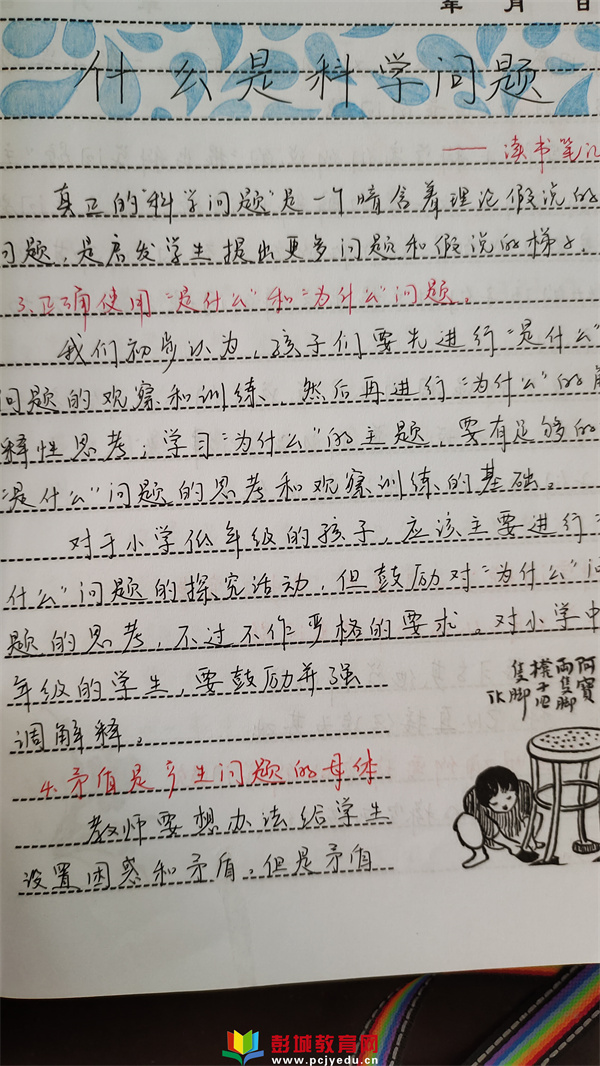 年 月 日
什么是科学问题
—— 读书笔记
真正的“科学问题”是一个暗含着理论假说的
问题,是启发学生提出更多问题和假说的梯子.
3.正确使用“是什么”和“为什么”问题.
我们初步认为,孩子们要先进行“是什么”
问题的观察和训练、然后再进行“为什么”的解
释性思考;学习“为什么”的主题,要有足够的
“是什么”问题的思考和观察训练的基础。
对于小学低年级的孩子,应该主要进行“
什么”问题的探究活动,但鼓励对“为什么”问
题的思考,不过不作严格的要求。对小学中
年级的学生,要鼓励并强
调解释。
4.矛盾是产生问题的母体
教师要想办法给学生
设置困惑和矛盾,但是矛盾
阿寶
兩隻腳
櫈子四
隻腳
TK
彭城教育网
www.pcjyedu.cn